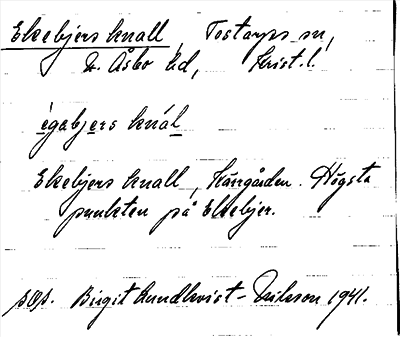 Ekebjers knall, Tostarps sn,
N. Åsbo hd, Krist. l.
égəbjers knál
Ekebjers knall, Kärrgården. Högsta
punkten på Ekebjer.
Birgit Lundkvist-Eriksson 1941.